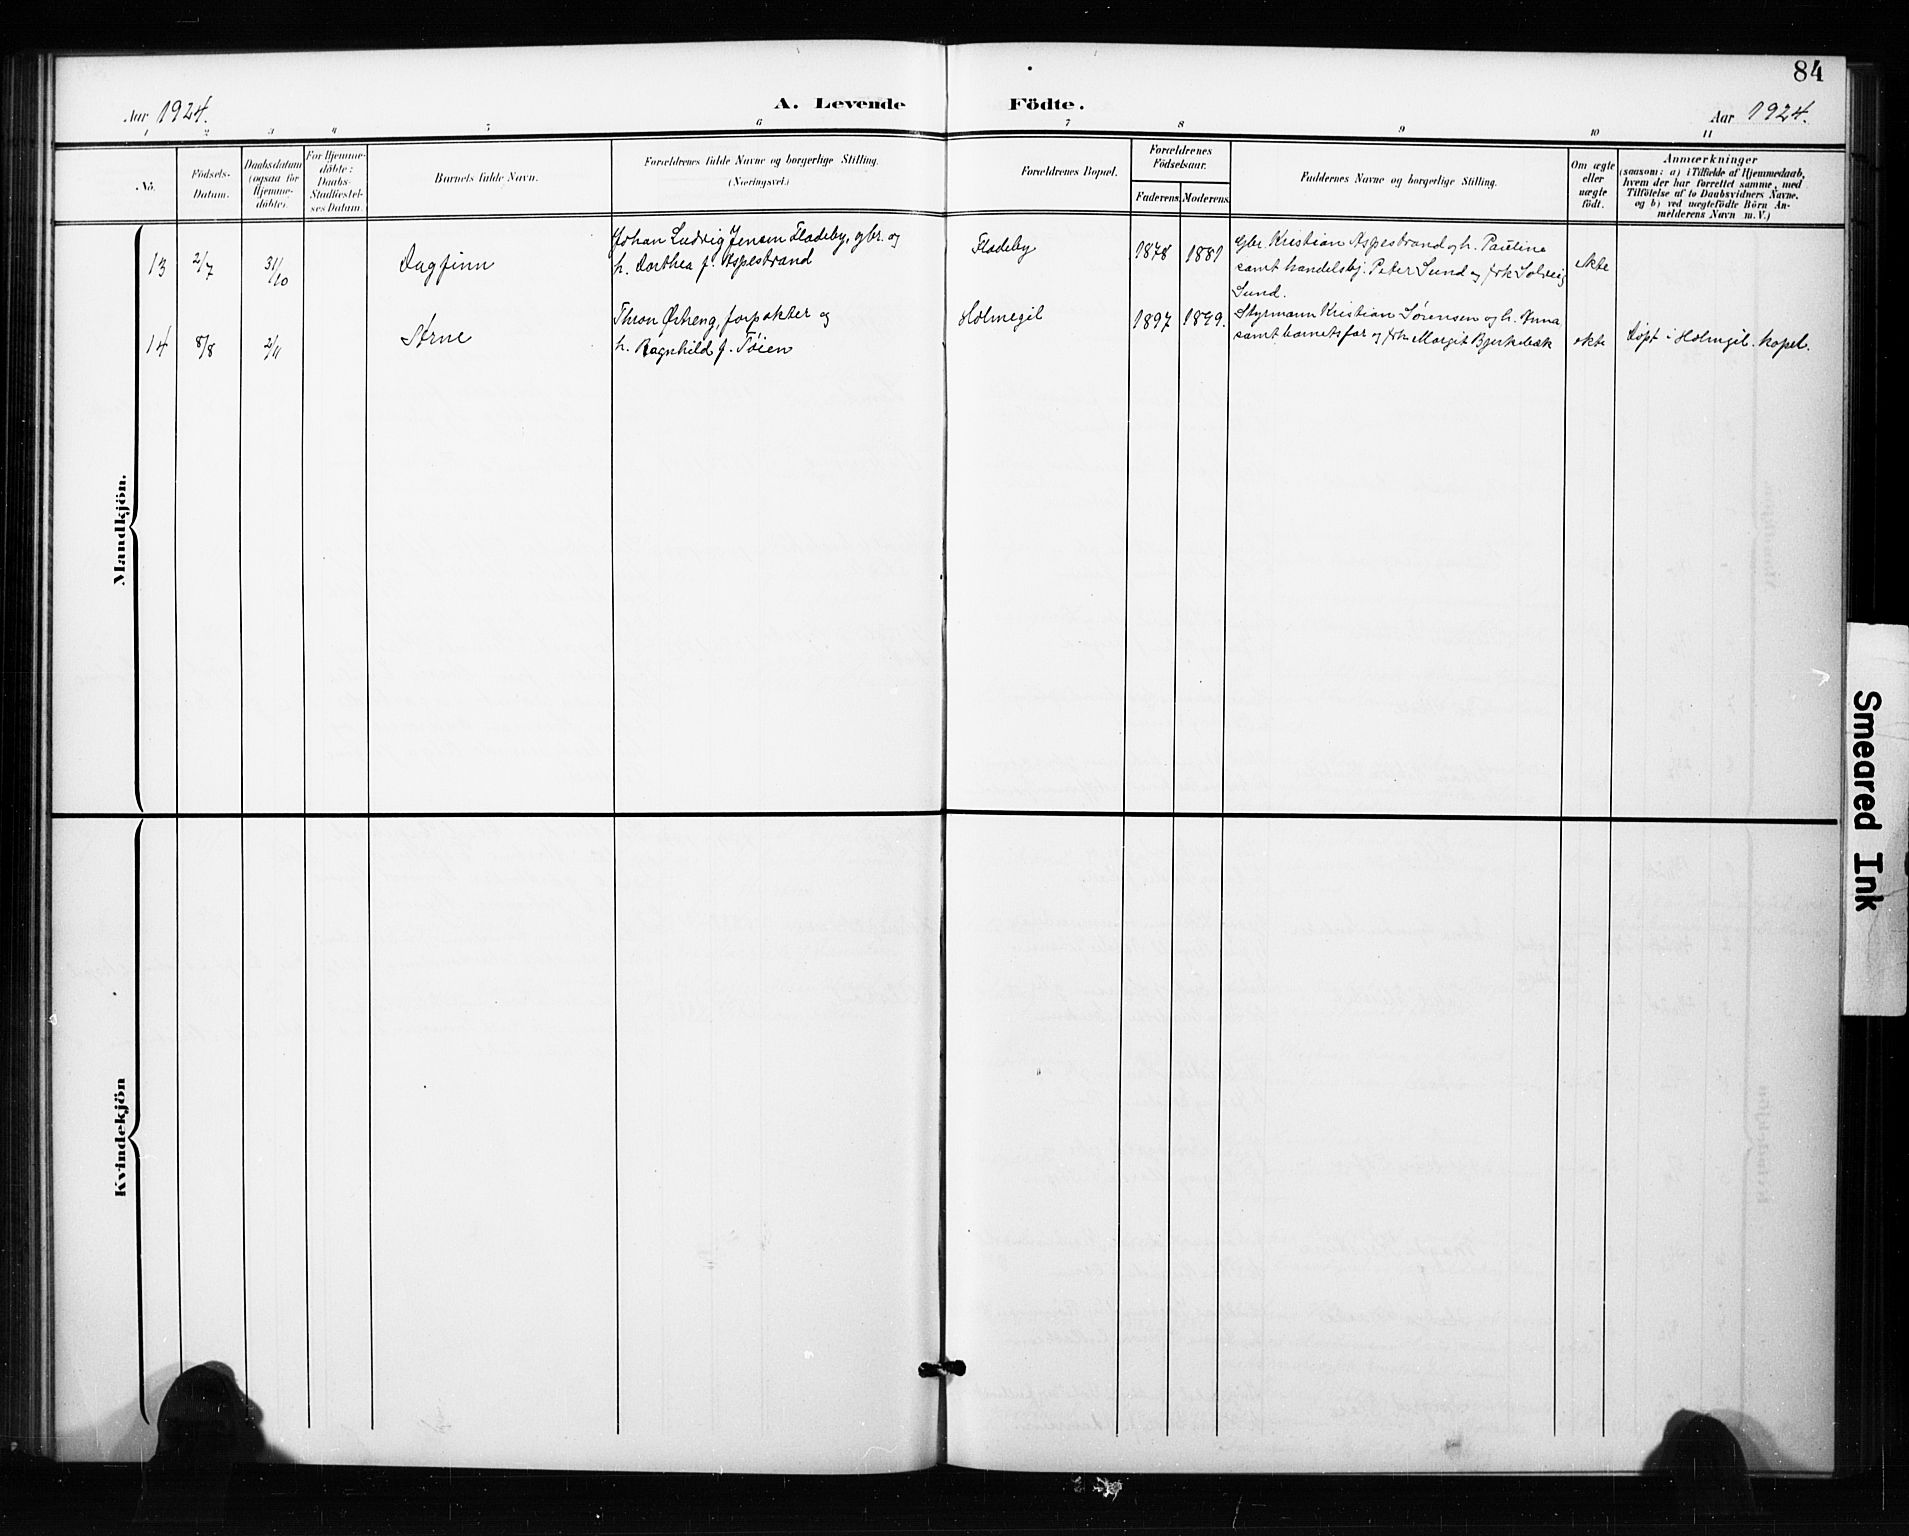 84
Aar 1924.
A. Levende Födte.
Aar 1924.
1 2 3 4 5 6 7 8 9 10 11
No.
Födsels-
Datum.
Daabsdatum
(ogsaa for
Hjemme-
döbte).
For Hjemme-
döbte:
Daabs-
Stadfæstel-
ses Datum.
Barnets fulde Navn.
Forældrenes fulde Navne og borgerlige Stilling.
(Næringsvei.)
Forældrenes Bopæl.
Forældrenes
Födselsaar.
Faderens.
Moderens.
Faddernes Navne og borgerlige Stilling.
Om ægte
eller
uægte
födt.
Anmærkninger
(saasom: a) i Tilfælde af Hjemmedaab,
hvem der har forrettet samme, med
Tilföielse af to Daabsvidners Navne.
og b) ved uægtefödte Börn An-
melderens Navn m.V.)
Mandkjön.
13
2/7
31/10
Dagfinn
Johan Ludvig Jensen Fladeby, gbr. og
h. Dorthea f. Aspestrand
Fladeby
1878
1881
Gbr. Kristian Aspestrand og h. Pauline
samt handelsbj. Peter Lund og frk Solveig
Lund.
ekte
14
8/8
2/11
Arne
Thron Østreng, forpakter og
h. Ragnhild f. Tøien
Holmegil
1897
1899.
Styrmann Kristian Sørensen og h. Anna
samt barnets far og frk. Margit Bjerkebæk
ekte
Døpt i Holmgil. kapel.
Kvindekjön
Smeared Ink